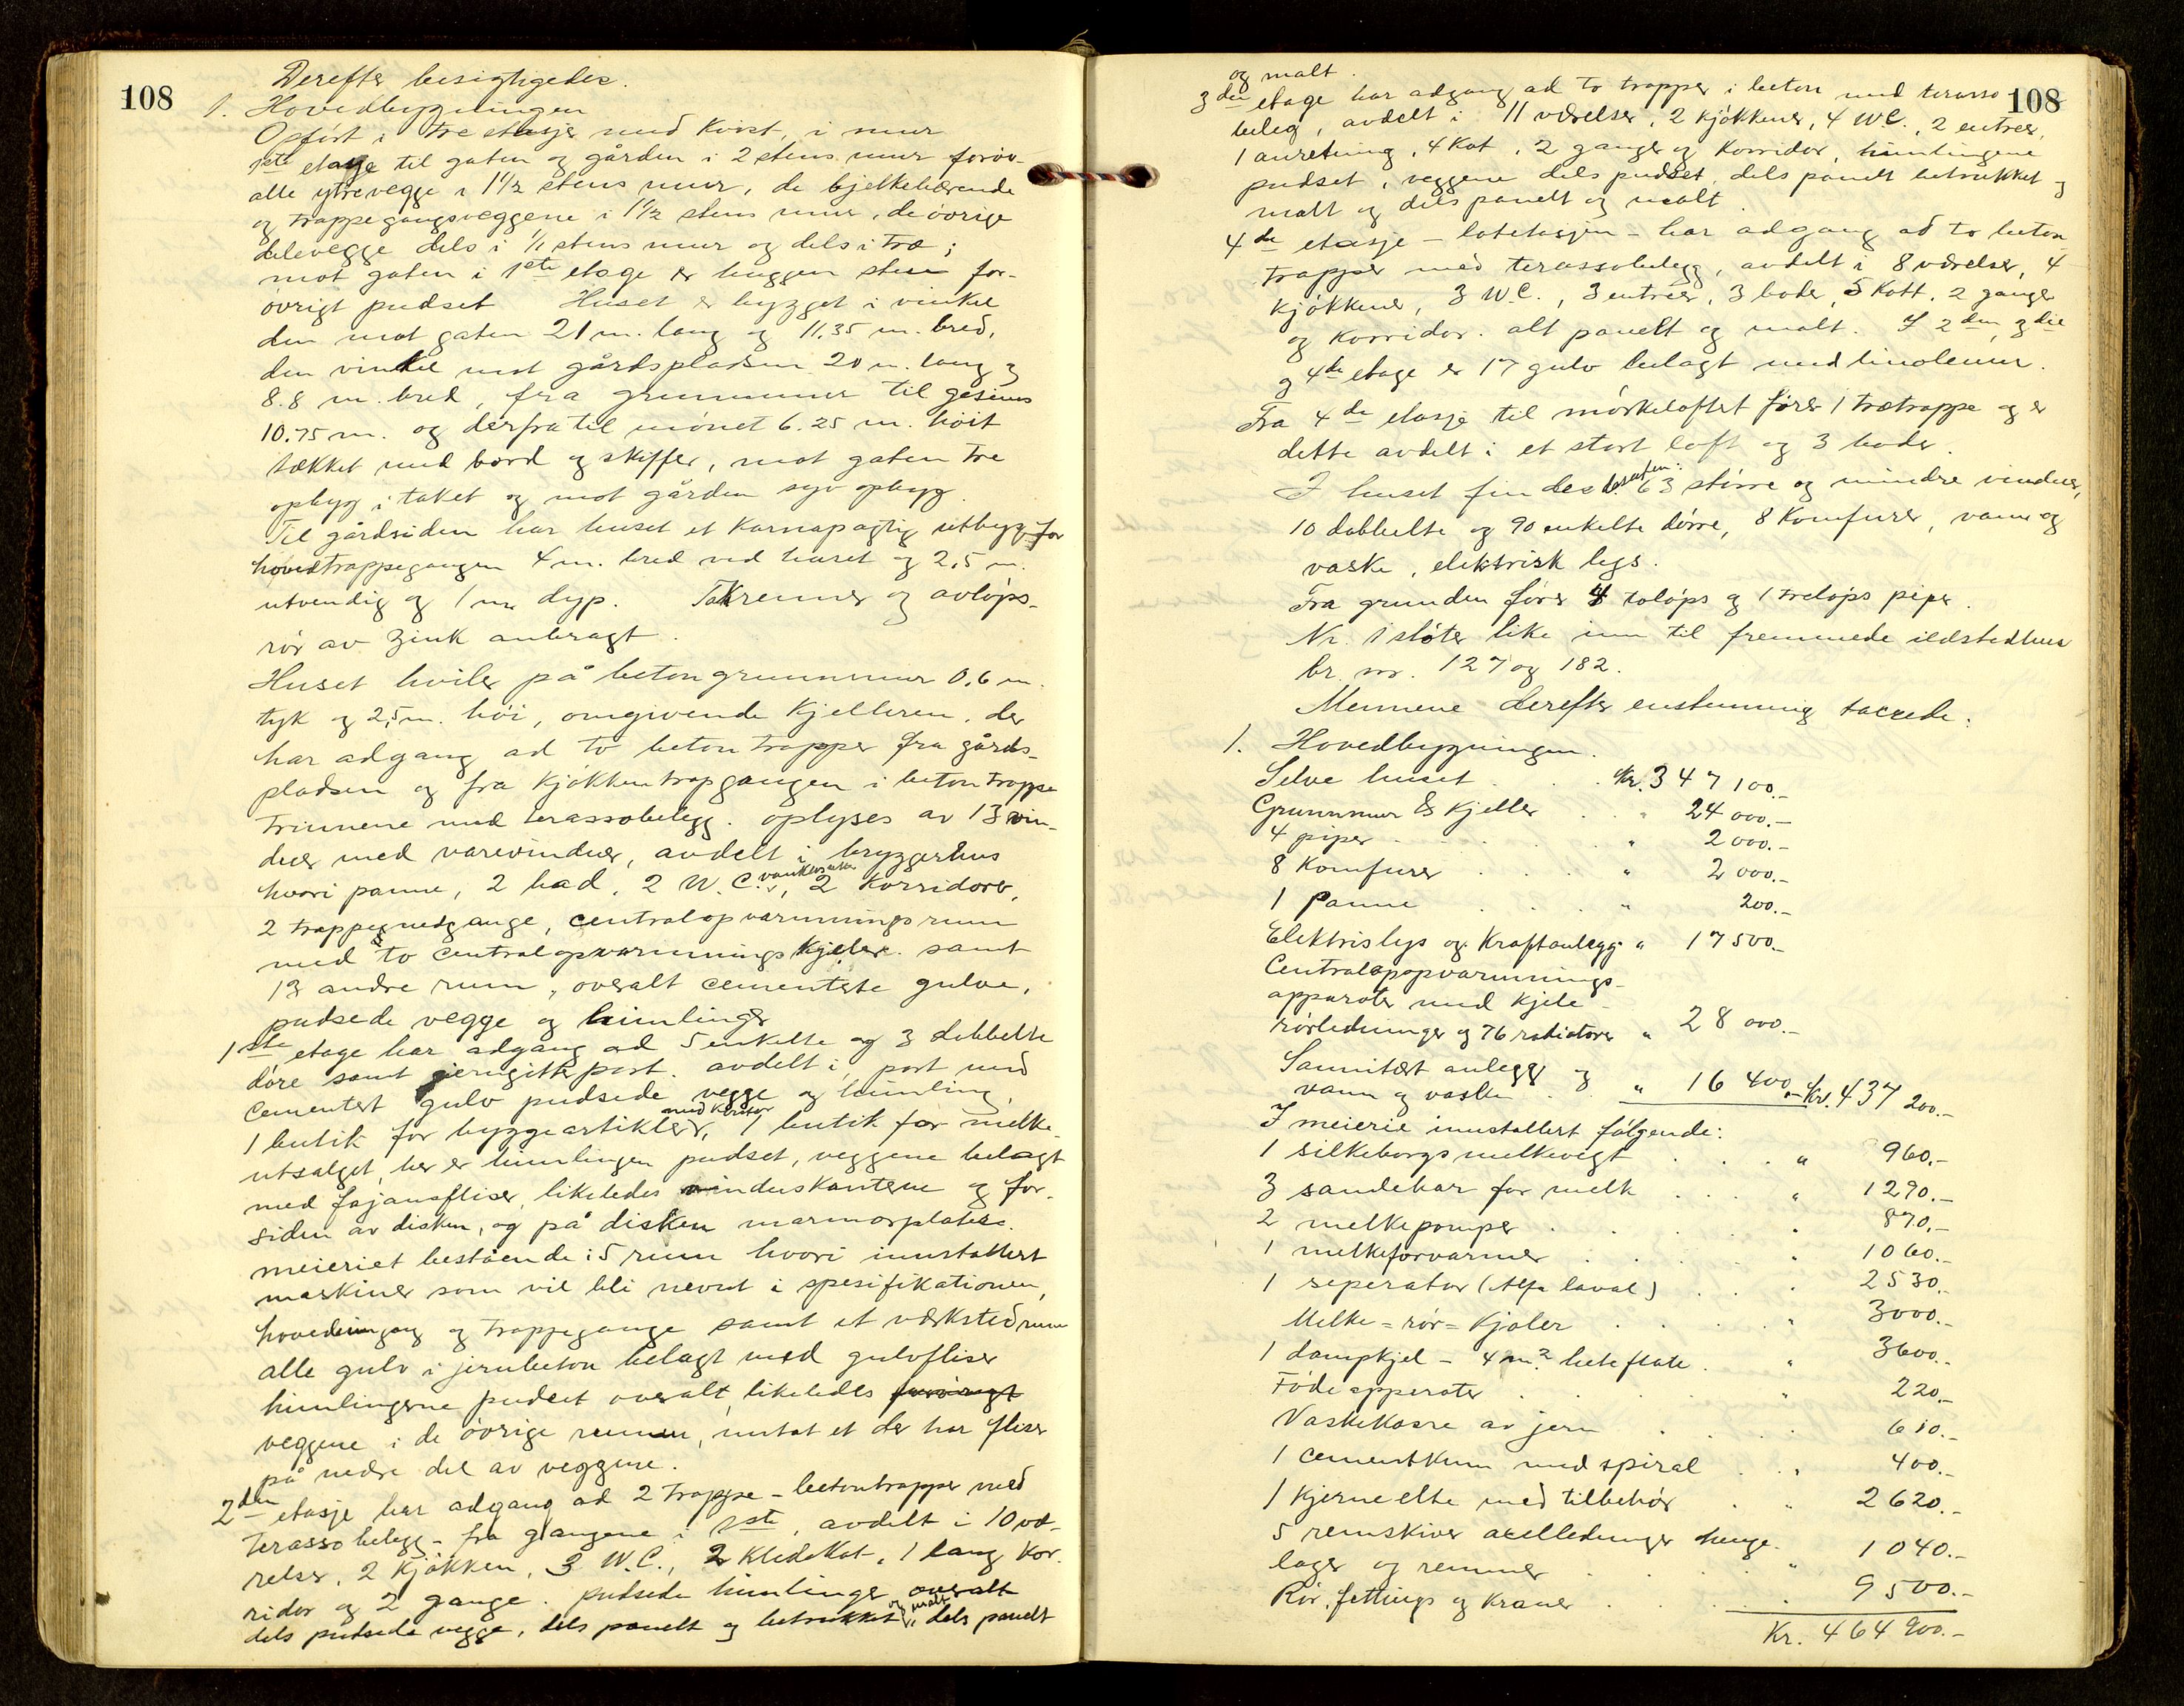 108
Derefter besigtigedes.
1. Hovedbygningen
Opført i tre etasjer med Kvist, i mur
1ste etasje til gaten og gården i 2 stens mur forøv-
alle ytrevegge i 1½ stens mur, de bjelkebærende
og trappegangsveggene i 1½ stens mur, de øvrige
delevegge dels i ½ stens mur og dels i træ;
mot gaten i 1ste etage er huggen sten for-
øvrigt pudset Huset er bygget i vinkel
den mot gaten 21 m. lang og 11,35 m. bred,
den vinkel mot gårdspladsen 20 m. lang og
8.8 m. bred, fra grunmur til gesims
10.75 m. og derfra til mønet 6.25 m. høit
tækket med bord og skiffer, mot gaten tre
opbyg i taket og mot gården syv opbyg.
Til gårdsiden har huset et Karnapagtig utbygg for
hovedtrappegangen 4 m. bred ved huset og 2,5 m.
utvendig og 1 m dyp. Takrenner og avløps-
rør av Zink anbragt.
Huset hviler på betongrunnmur 0,6 m.
tyk og 2,5 m. høi, omgivende Kjelleren, der
har adgang ad to betontrapper fra gårds-
pladsen og fra Kjøkkentrapgangen i betontrappe
trinnene med terassobelegg. oplyses av 13 vin-
duer med varevinduer, avdelt i bryggerhus
hvori panne, 2 bad, 2 W.C., 2 Korridorer,
2 trappenedgange, centralopvarmningsrum
med to centralopvarmnings Kjeler. samt
13 andre rum, overalt cementerte gulve,
pudsede vegge og himlinger
1ste etage har adgang ad 5 enkelte og 3 dobbelte
døre samt jerngitterport. avdelt i, port med
Cementert gulv pudsede vegge og himling,
1 butik for byggeartikler med Kontor, 1 butik for melke-
utsalget, her er himlingen pudset, veggene belagt
med fajansefliser, likeledes vinduskantene og for-
siden av disken, og på disken marmorplater.
meieriet bestående i 5 rum hvori innstallert
maskiner som vil bli nevnt i spesifikationen,
hovedinngang og trappegange samt et værkstedrum
alle gulv i jernbeton belagt med gulvfliser
himlingerne pudset overalt, likeledes forøvrigt
veggene i de øvrige rummen, untat et der har fliser
på nedre del av veggene.
2den etasje har adgang ad 2 trappe - betontrapper med
terassobelegg - fra gangene i 1ste, avdelt i 10 væ-
relser, 2 Kjøkken, 3 W.C., 2 Kledekot, 1 lang Kor-
ridor og 2 gange. pudsede himlinger overalt
dels pudsede vegge, dels panelt og betrukket og malt, dels panelt
108
og malt.
3die etage har adgang ad to trapper i beton med terasso
beleg, avdelt i 11 værelser, 2 kjøkkener, 4 W.C., 2 entreer,
1 anretning, 4 Kot, 2 ganger og Korridor, himlingene
pudset, veggene dels pudset, dels panelt betrukket og
malt og dels panelt og malt.
4de etasje - lofetasjen - har adgang ad to beton
trapper med terassobelegg, avdelt i 8 værelser, 4
Kjøkkener, 3 W.C., 3 entreer, 3 boder, 5 Kott, 2 ganger
og Korridor. alt panelt og malt. I 2den, 3die
og 4de etage er 17 gulv belagt med linoleum.
Fra 4de etasje til mørkeloftet fører 1 trætrappe og er
dette avdelt i et stort loft og 3 boder.
I huset findes 63 større og mindre vinduer,
10 dobbelte og 90 enkelte dørre, 8 Komfurer, vann og
vaske, elektrisk lys.
Fra grunden fører 4 toløps og 1 treløps piper.
Nr. 1 støter like inn til fremmede ildstedhus
br. nr. 127 og 182.
Mennene derefter enstemmig takserede:
1. Hovedbygningen.
Selve huset . . . Kr. 347 100.-
Grunnmur & Kjeller . . " 24 000.-
4 piper . . . . " 2 000.-
8 Komfurer . . . " 2 000.-
1 Panne . . . " 200.-
Elektrislys og Kraftanlegg " 17 500.-
Centralopopvarmnings-
apparater med Kjele -
rørledninger og 76 radiatorer " 28 000.-
Sannitært anlegg og
vann og vasker . . " 16 400.- Kr. 437 200.-
I meierie innstallert følgende:
1 silkeborgs melkevegt . . . " 960.-
3 sandebar for melk . . . " 1290.-
2 melkepomper . . . . " 870.-
1 melkeforvarmer . . . . " 1060.-
1 seperator (Alfa laval) . . . 2530.-
Melke = rør = Kjøler . . . " 3000.-
1 dampkjel - 4 m² heteflate . " 3600.-
Føde apperater . . . . " 220.-
Vaskekarre av jern . . . . 610.-
1 cementkum med spiral . . " 400.-
1 Kjerneelte med tilbehør . " 2620.-
5 remskiver axelledninger henge-
lager og remmer . . . . " 1040.-
Rør, fettings og Kraner . . . . 9500.-
Kr. 464 900.-